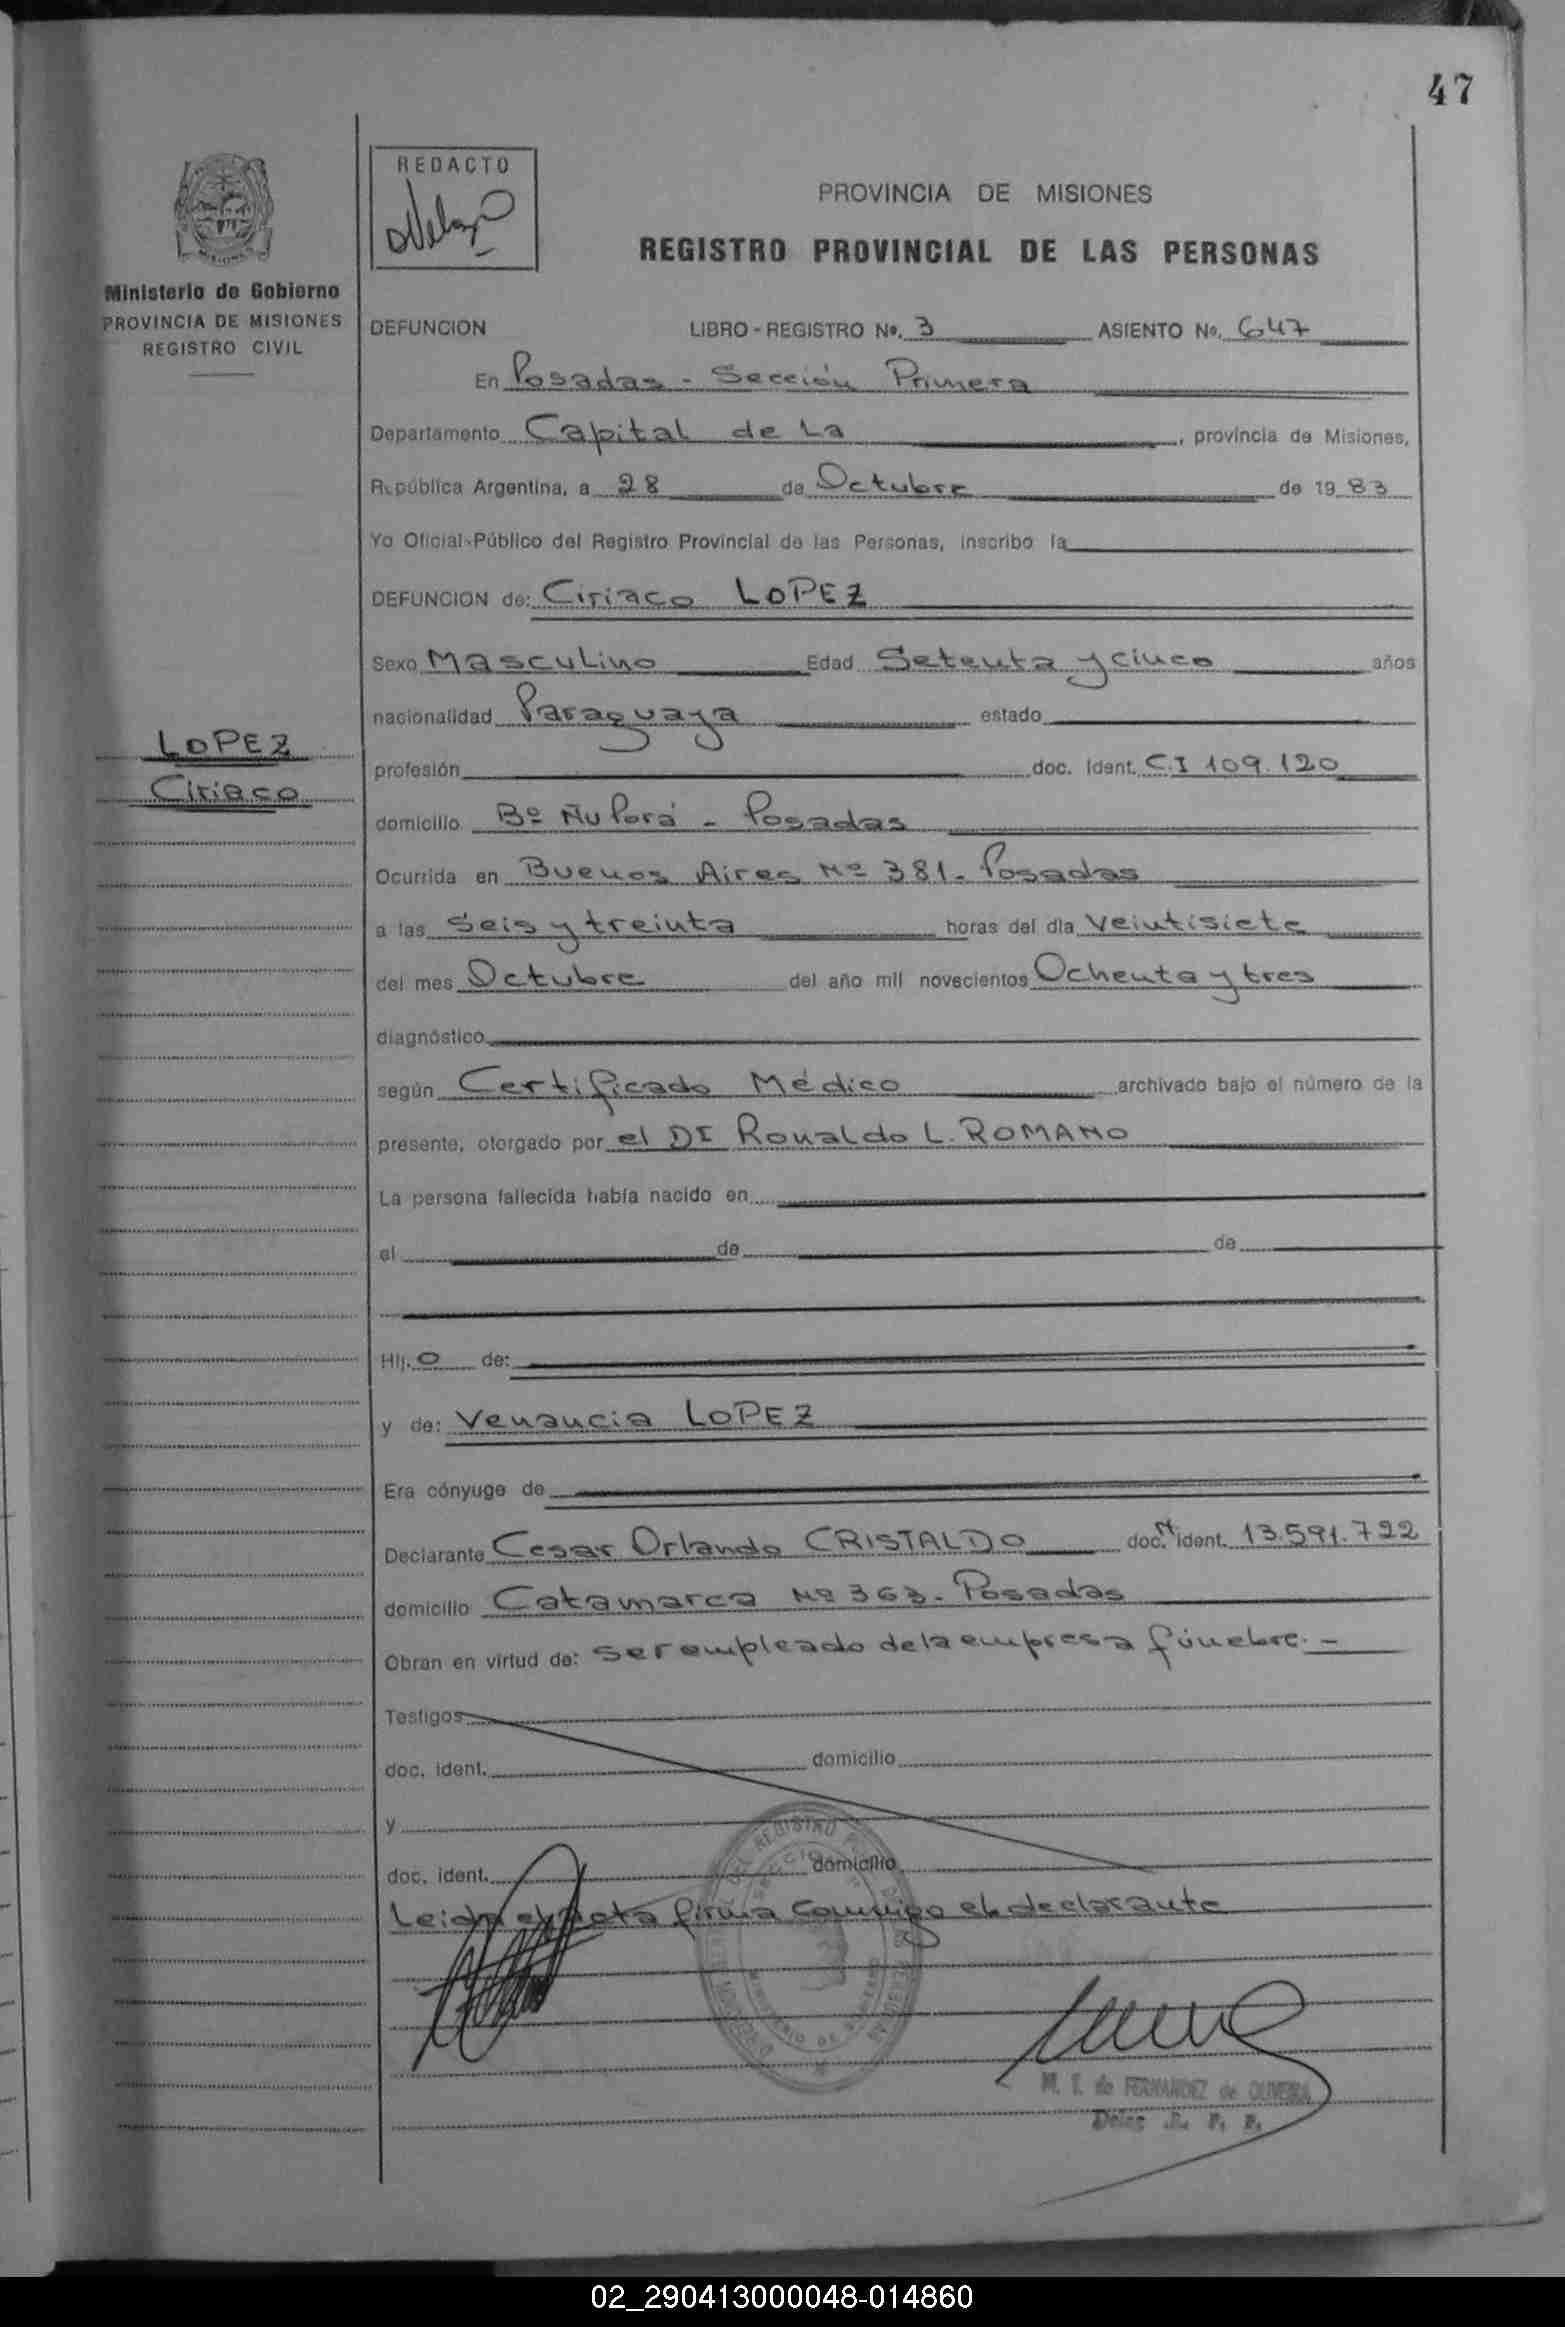 47
REDACTO
PROVINCIA DE MISIONES
REGISTRO PROVINCIAL DE LAS PERSONAS
MISIONES
Ministerio de Gobierno
PROVINCIA DE MISIONES
REGISTRO CIVIL
DEFUNCION LIBRO - REGISTRO No. 3 ASIENTO No. 647
En Posadas - Sección Primera
Departamento Capital de La , provincia de Misiones,
República Argentina, a 28 de Octubre de 19 83
Yo Oficial Público del Registro Provincial de las Personas, inscribo la
DEFUNCION de: Ciriaco LOPEZ
Sexo Masculino Edad Setenta y cinco años
nacionalidad Paraguaya estado
LOPEZ
Ciriaco
profesión doc. ident. C.I 109.120
domicilio Bº Ñu Porá - Posadas
Ocurrida en Buenos Aires Nº 381 - Posadas
a las Seis y treinta horas del día Veintisiete
del mes Octubre del año mil novecientos Ochenta y tres
diagnóstico
según Certificado Médico archivado bajo el número de la
presente, otorgado por el Dr Ronaldo L. ROMANO
La persona fallecida había nacido en
el de de
Hij. o de:
y de: Venancia LOPEZ
Era cónyuge de
Declarante Cesar Orlando CRISTALDO doc. ident. 13.591.722
domicilio Catamarca Nº 363 - Posadas
Obran en virtud de: ser empleado de la empresa fúnebre. -
Testigos
doc. ident. domicilio
y
doc. ident. domicilio
Leida el acta firma conmigo el declarante
M. T. de FERNANDEZ de OLIVEIRA
02_290413000048-014860